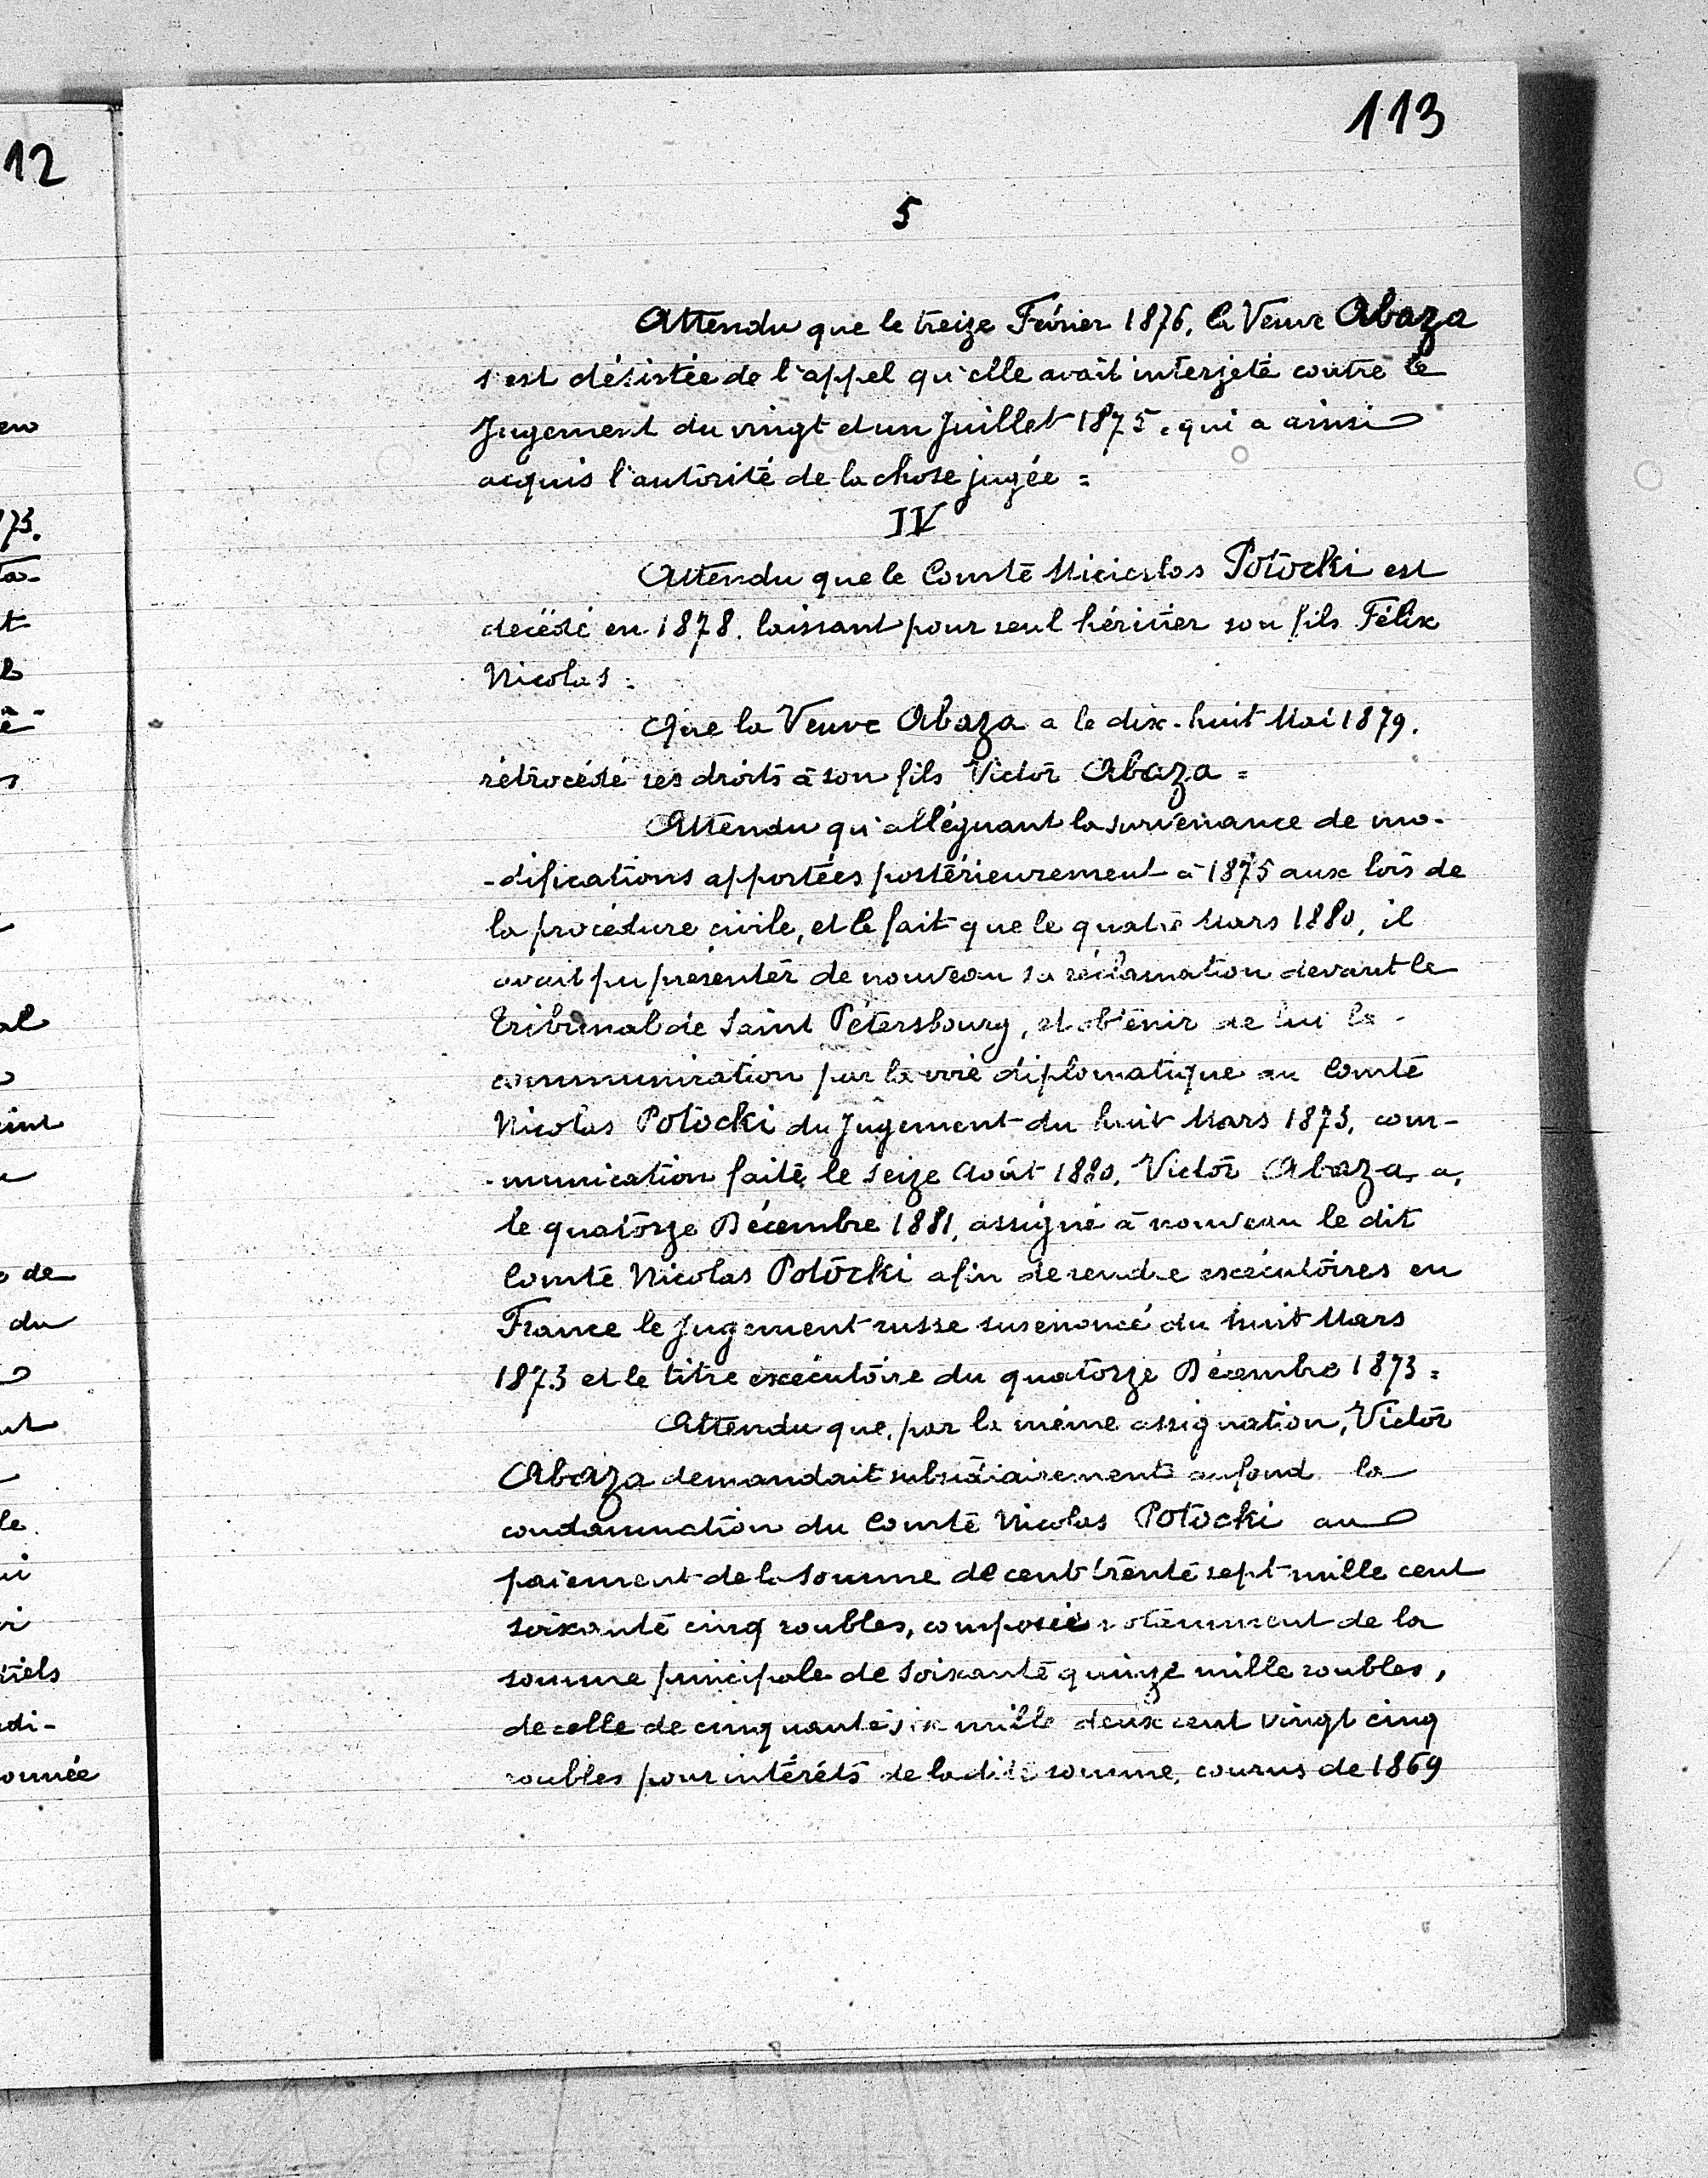 113
12
5
Attendu que le treize Février 1876, la Veuve Abaza
s'est désistée de l'appel qu'elle avait interjeté contre le
Jugement du vingt et un Juillet 1875, qui a ainsi
acquis l'autorité de la chose jugée =
IV
Attendu que le Comte Miecislas Potocki est
décédé en 1878, laissant pour seul héritier son fils Félix
Nicolas :
Que la Veuve Abaza a le dix-huit Mai 1879,
rétrocédé ses droits à son fils Victor Abaza =
Attendu qu'alléguant la survenance de mo-
-difications apportées postérieurement à 1875 aux lois de
la procédure civile, et le fait que le quatre Mars 1880, il
avait pu présenter de nouveau sa réclamation devant le
Tribunal de Saint Pétersbourg, et obtenir de lui la
communication par la voie diplomatique au Comte
Nicolas Potocki du Jugement du huit Mars 1873, com-
-munication faite le seize Août 1880, Victor Abaza, a,
le quatorze Décembre 1881, assigné à nouveau le dit
Comte Nicolas Potocki afin de rendre exécutoires en
France le Jugement russe susénoncé du huit Mars
1873 et le titre exécutoire du quatorze Décembre 1873 =
Attendu que, par la même assignation, Victor
Abaza demandait subsidiairement au fond la
condamnation du Comte Nicolas Potocki au
paiement de la somme de cent trente sept mille cent
soixante cinq roubles, composée notamment de la
somme principale de soixante quinze mille roubles,
de celle de cinquante six mille deux cent vingt cinq
roubles pour intérêts de la dite somme, courus de 1869